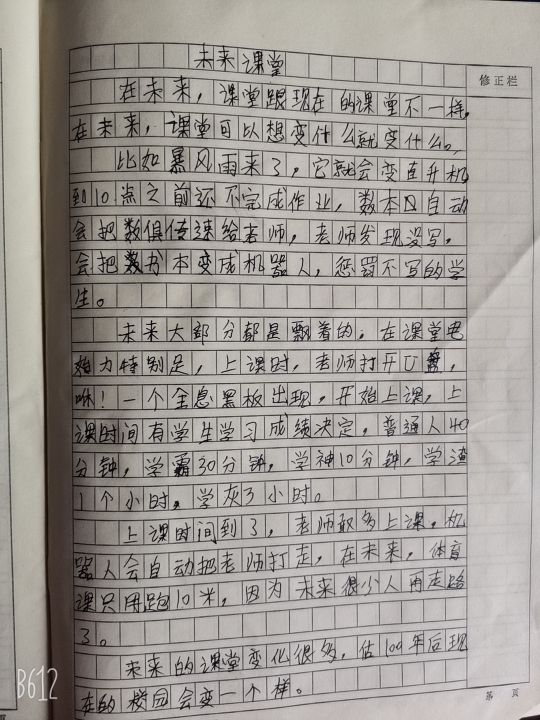 未来课堂
修正栏
在未来，课堂跟现在的课堂不一样，
在未来，课堂可以想变什么就变什么。
比如暴风雨来了，它就会变直升机
到10点之前还不完成作业，数本自动
会把数俱传速给老师，老师发现没写，
会把书本变成机器人，惩罚不写的学
生。
未来大部分都是飘着的，在课堂电
力特别足，上课时，老师打开U盘，
咻！一个全息黑板出现，开始上课，上
课时间有学生学习成绩决定，普通人40
分钟，学霸30分钟，学神10分钟，学渣
1个小时，学灰3小时。
上课时间到了，老师敢多上课，机
器人会自动把老师打走，在未来，体育
课只用跑10米，因为未来很少人再走路
了。
未来的课堂变化很多，估100年后现
在的校园会变一个样。
第 页
B612